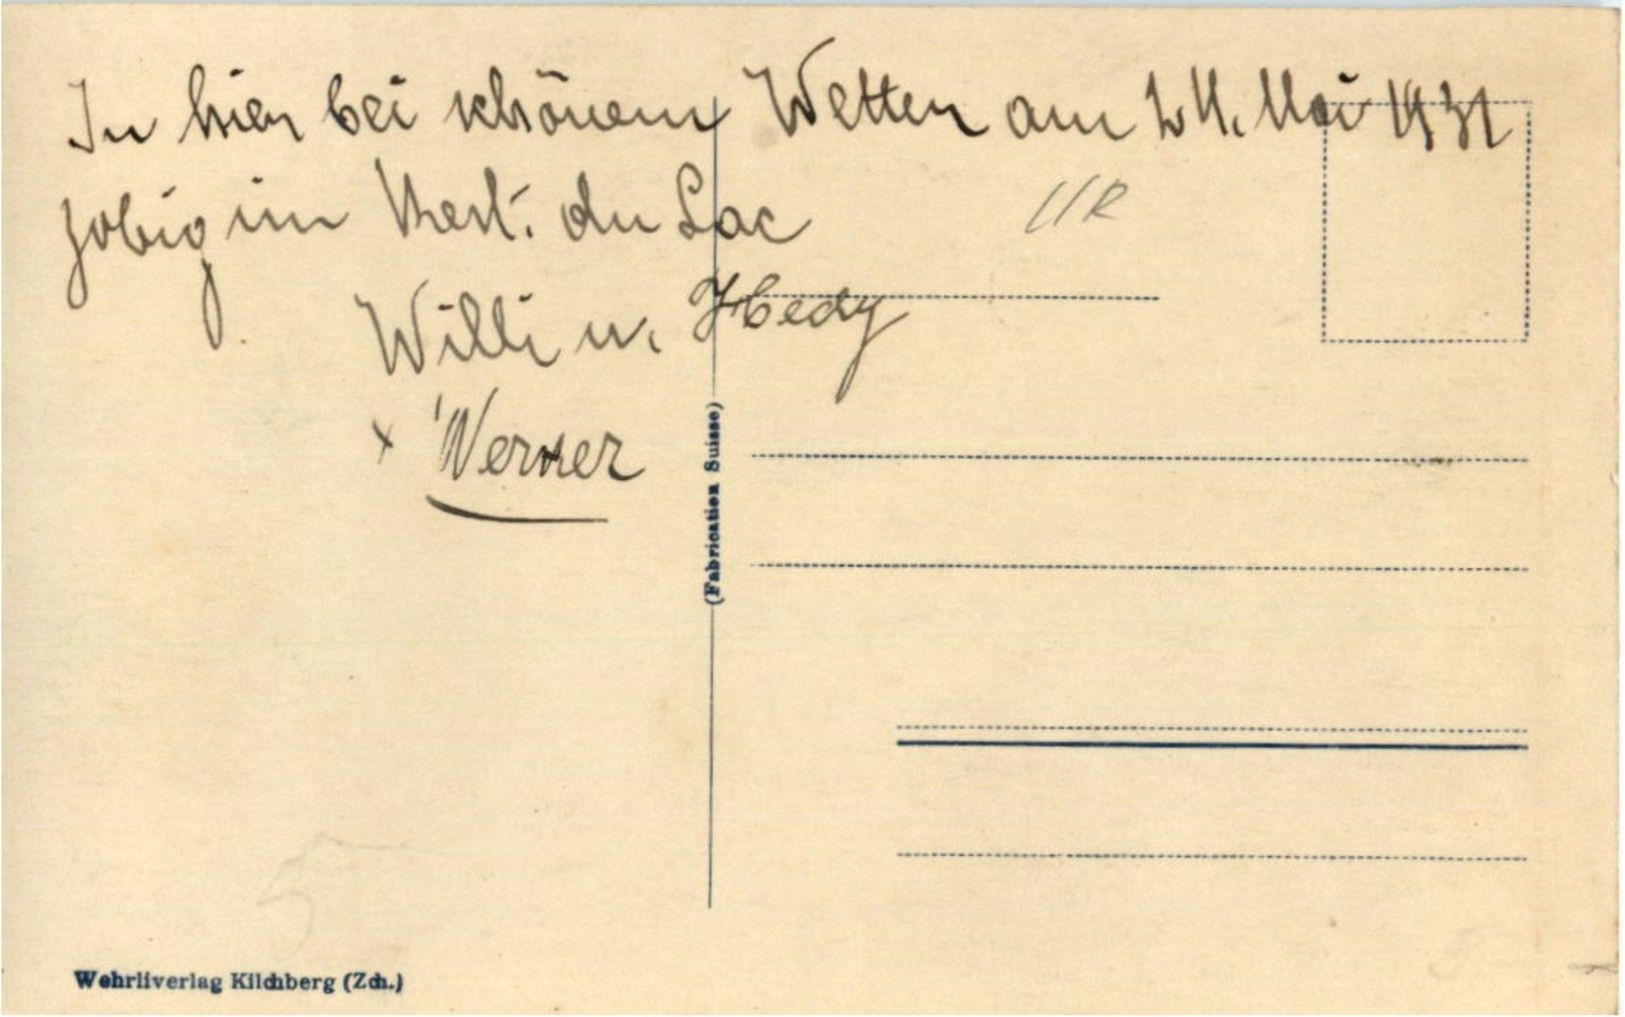 In hier bei schönem Wetter am 24. Mai 1931
zobig im Rest. du Lac
UR
Willi u. Hedy
+ Werner
(Fabrication Suisse)
Wehrliverlag Kilchberg (Zch.)